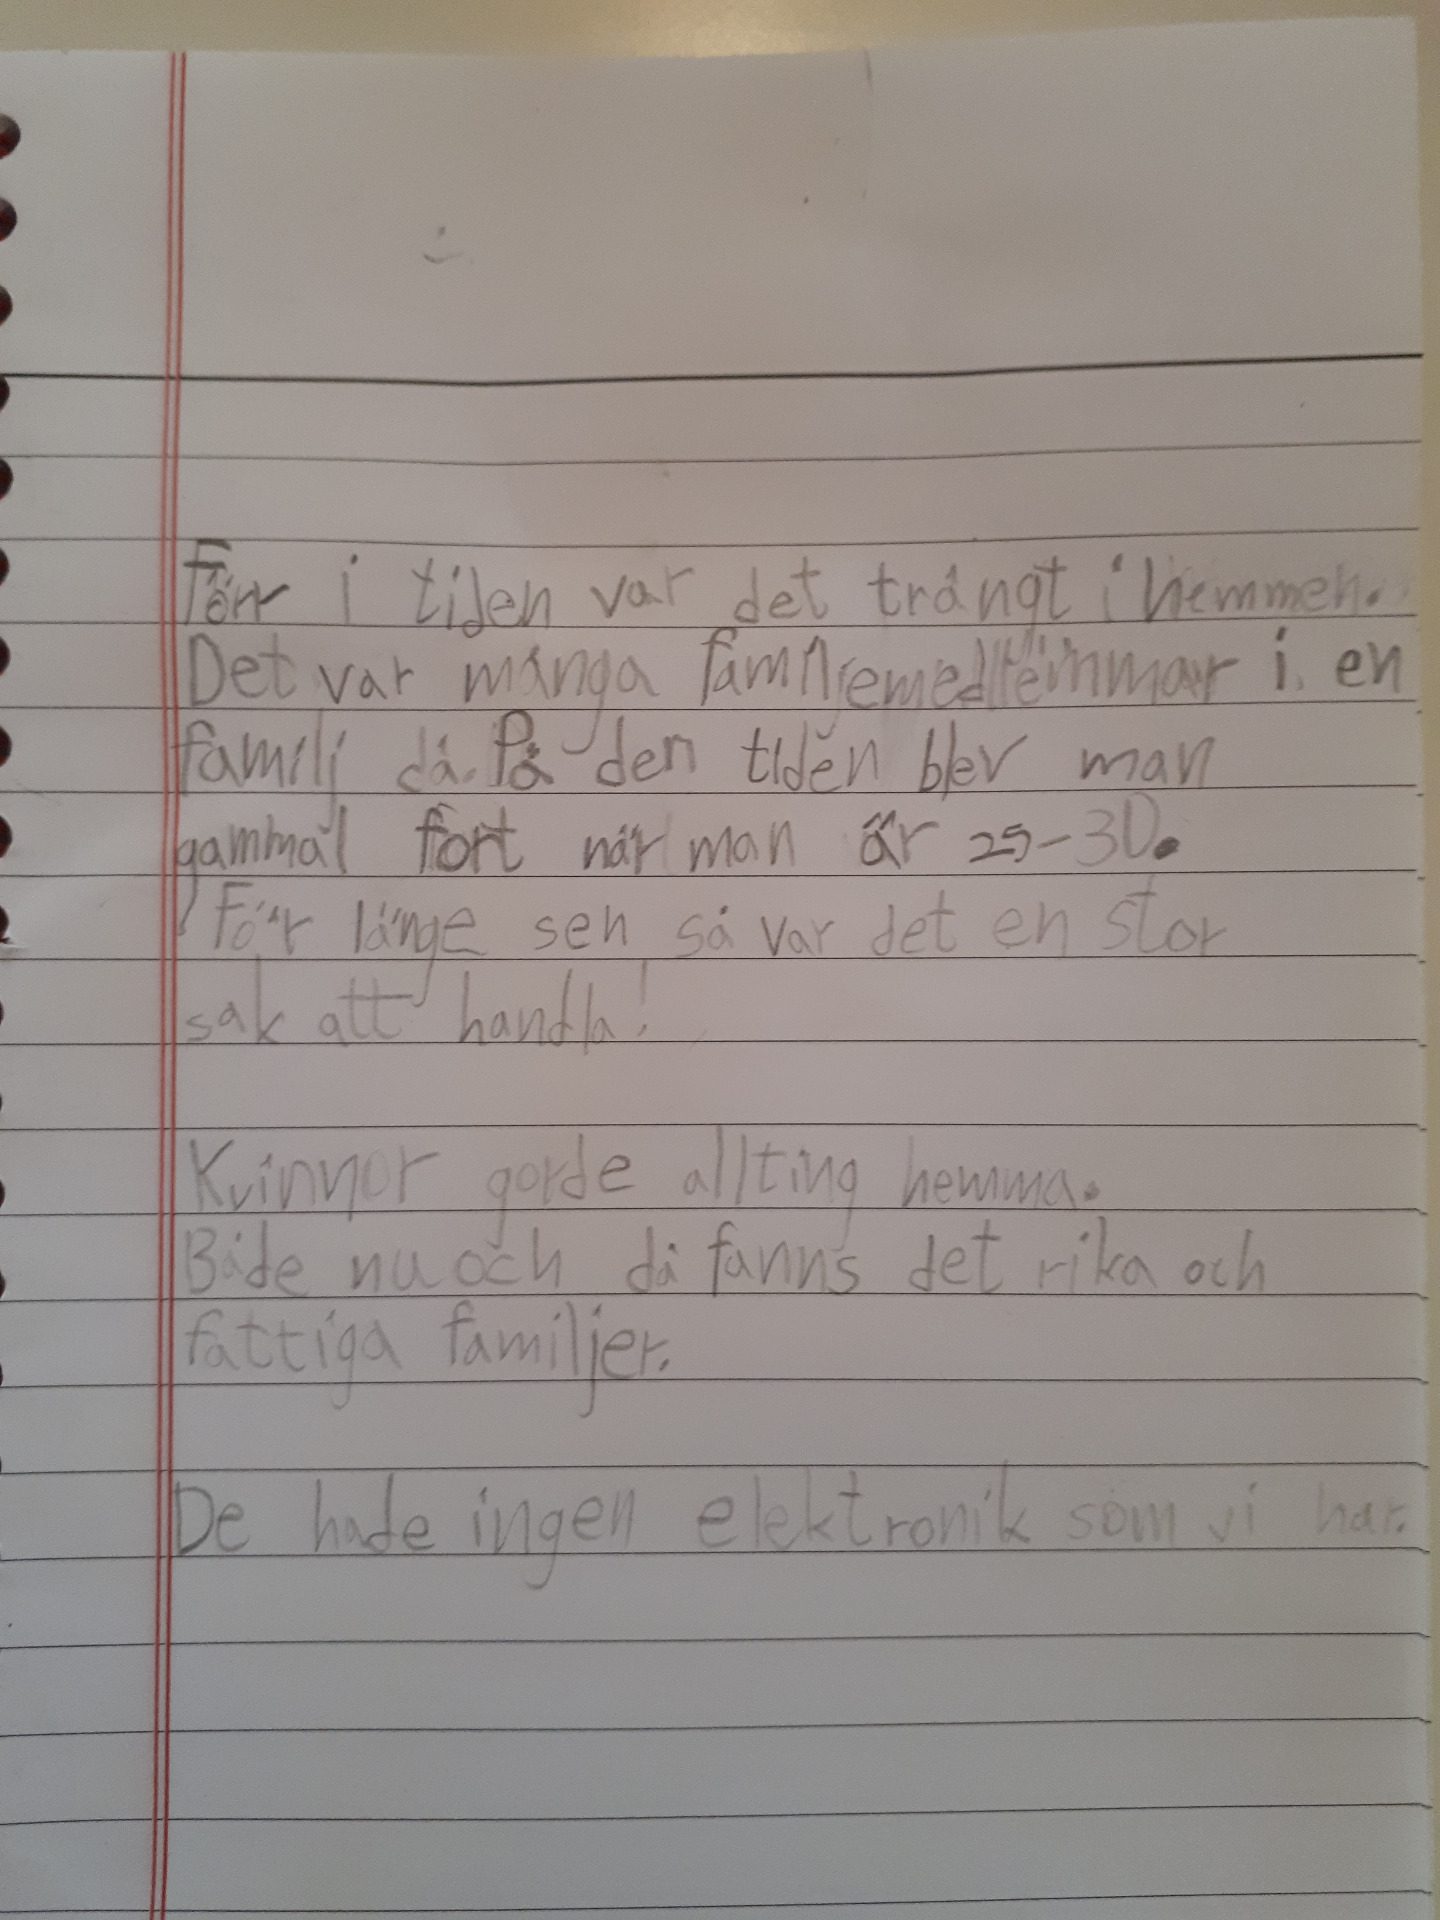 Förr i tiden var det trångt i hemmen.
Det var många familjemedlemmar i en
familj då. På den tiden blev man
gammal fort när man är 25-30.
För länge sen så var det en stor
sak att handla!
Kvinnor gorde allting hemma.
Både nu och då fanns det rika och
fattiga familjer.
De hade ingen elektronik som vi har.